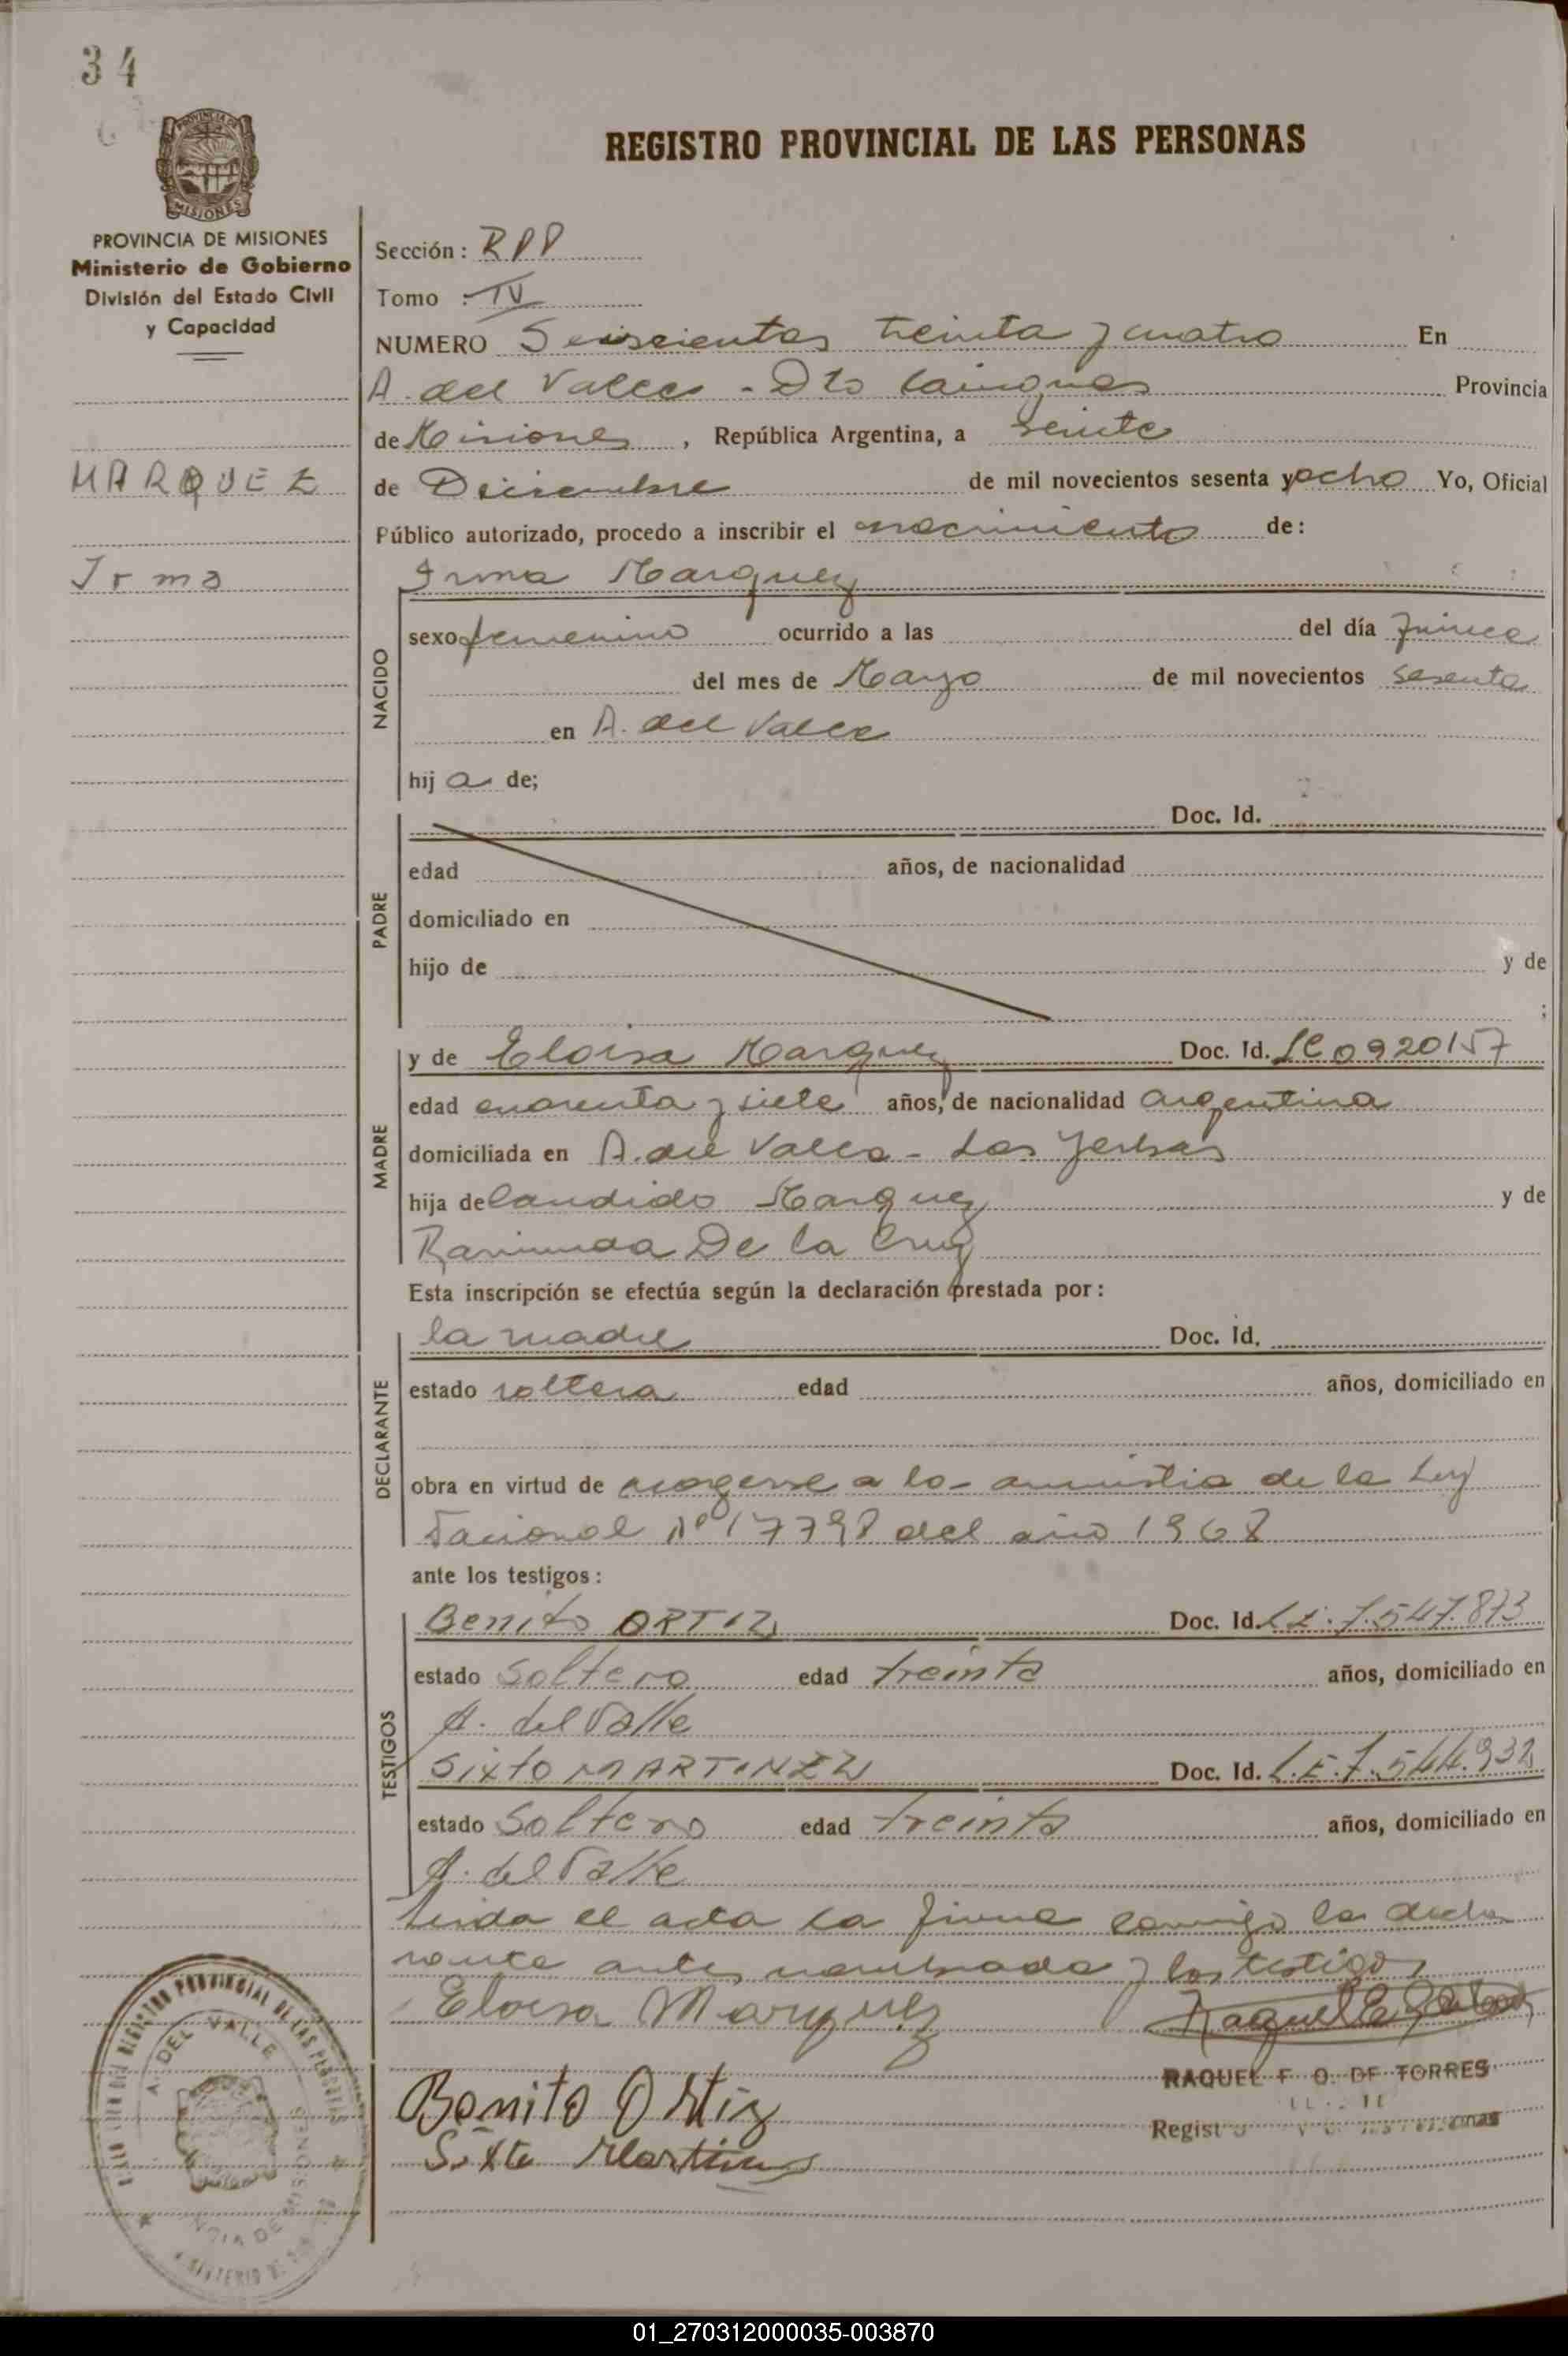 34
PROVINCIA DE
MISIONES
REGISTRO PROVINCIAL DE LAS PERSONAS
PROVINCIA DE MISIONES
Ministerio de Gobierno
División del Estado Civil
y Capacidad
Sección: RPP
Tomo : IV
NUMERO Seiscientos treinta y cuatro En
A. del Valle - Dto Cainguas Provincia
de Misiones, República Argentina, a veinte
MARQUEZ
de Diciembre de mil novecientos sesenta y ocho Yo, Oficial
Público autorizado, procedo a inscribir el nacimiento de:
Irma
Irma Marquez
NACIDO
sexo femenino ocurrido a las del día quince
del mes de Marzo de mil novecientos sesenta
en A. del Valle
hij a de;
PADRE
Doc. Id.
edad años, de nacionalidad
domiciliado en
hijo de y de
;
MADRE
y de Eloisa Marquez Doc. Id. LC 0920157
edad cuarenta y siete años, de nacionalidad argentina
domiciliada en A. del Valle - Las Yerbas
hija de Candido Marquez y de
Ramunda De la Cruz
Esta inscripción se efectúa según la declaración prestada por:
DECLARANTE
la madre Doc. Id.
estado soltera edad años, domiciliado en
obra en virtud de acogerse a la amnistia de la Ley
Nacional Nº 17798 del año 1968
ante los testigos:
TESTIGOS
Benito ORTIZ Doc. Id. L.E. 7.547.873
estado soltero edad treinta años, domiciliado en
A. del Valle
Sixto MARTINEZ Doc. Id. L.E. 7.544.932
estado soltero edad treinta años, domiciliado en
A. del Valle
Leida el acta la firma conmigo la decla
rante antes nombrada y los testigos
Eloisa Marquez
Benito Ortiz
RAQUEL F. O. DE TORRES
Sixto Martinez
REGISTRO PROVINCIAL DE LAS PERSONAS
A. DEL VALLE
MISIONES
01_270312000035-003870